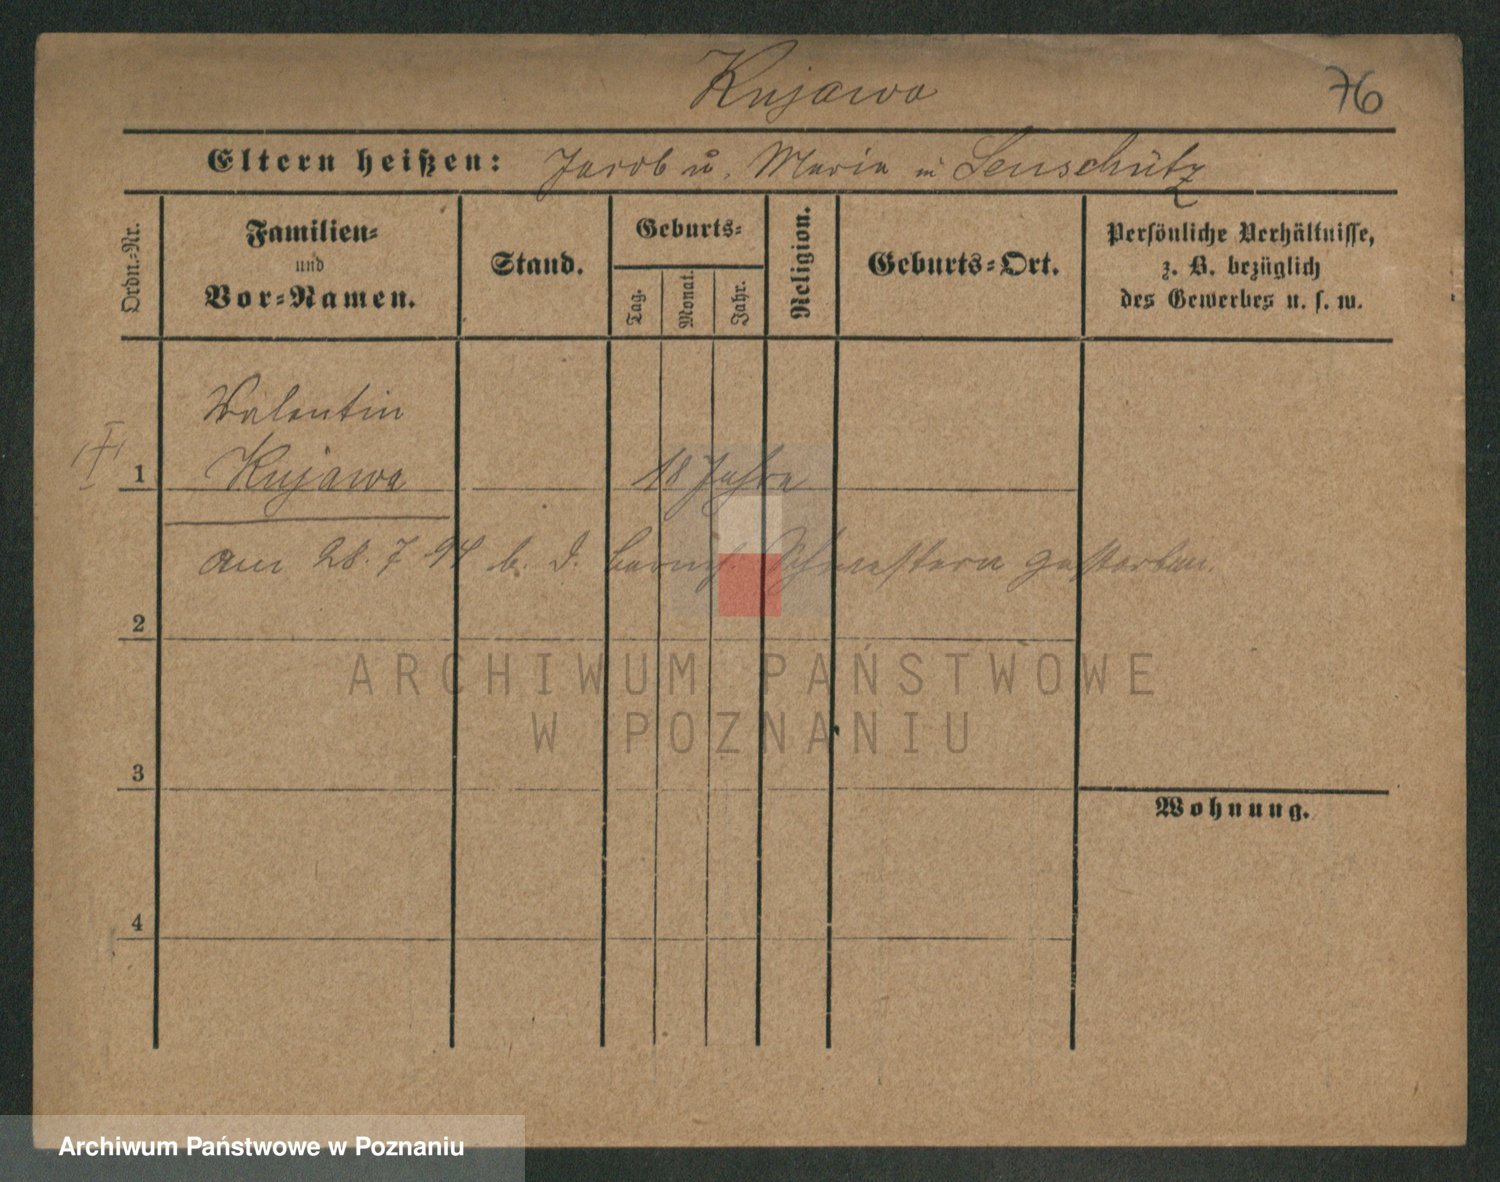 Kujawa
76
Eltern heißen: Jacob u. Maria in Lenschütz
Ordn.-Nr.
Familien-
und
Vor-Namen.
Stand.
Geburts-
Tag.
Monat.
Jahr.
Religion.
Geburts-Ort.
Persönliche Verhältnisse,
z. B. bezüglich
des Gewerbes u. s. w.
Valentin
1 Kujawa 18 Jahre
am 28. 7 94 b. d. barmh. Schwestern gestorben.
2
3
4
Wohnung.
ARCHIWUM PAŃSTWOWE
W POZNANIU
Archiwum Państwowe w Poznaniu